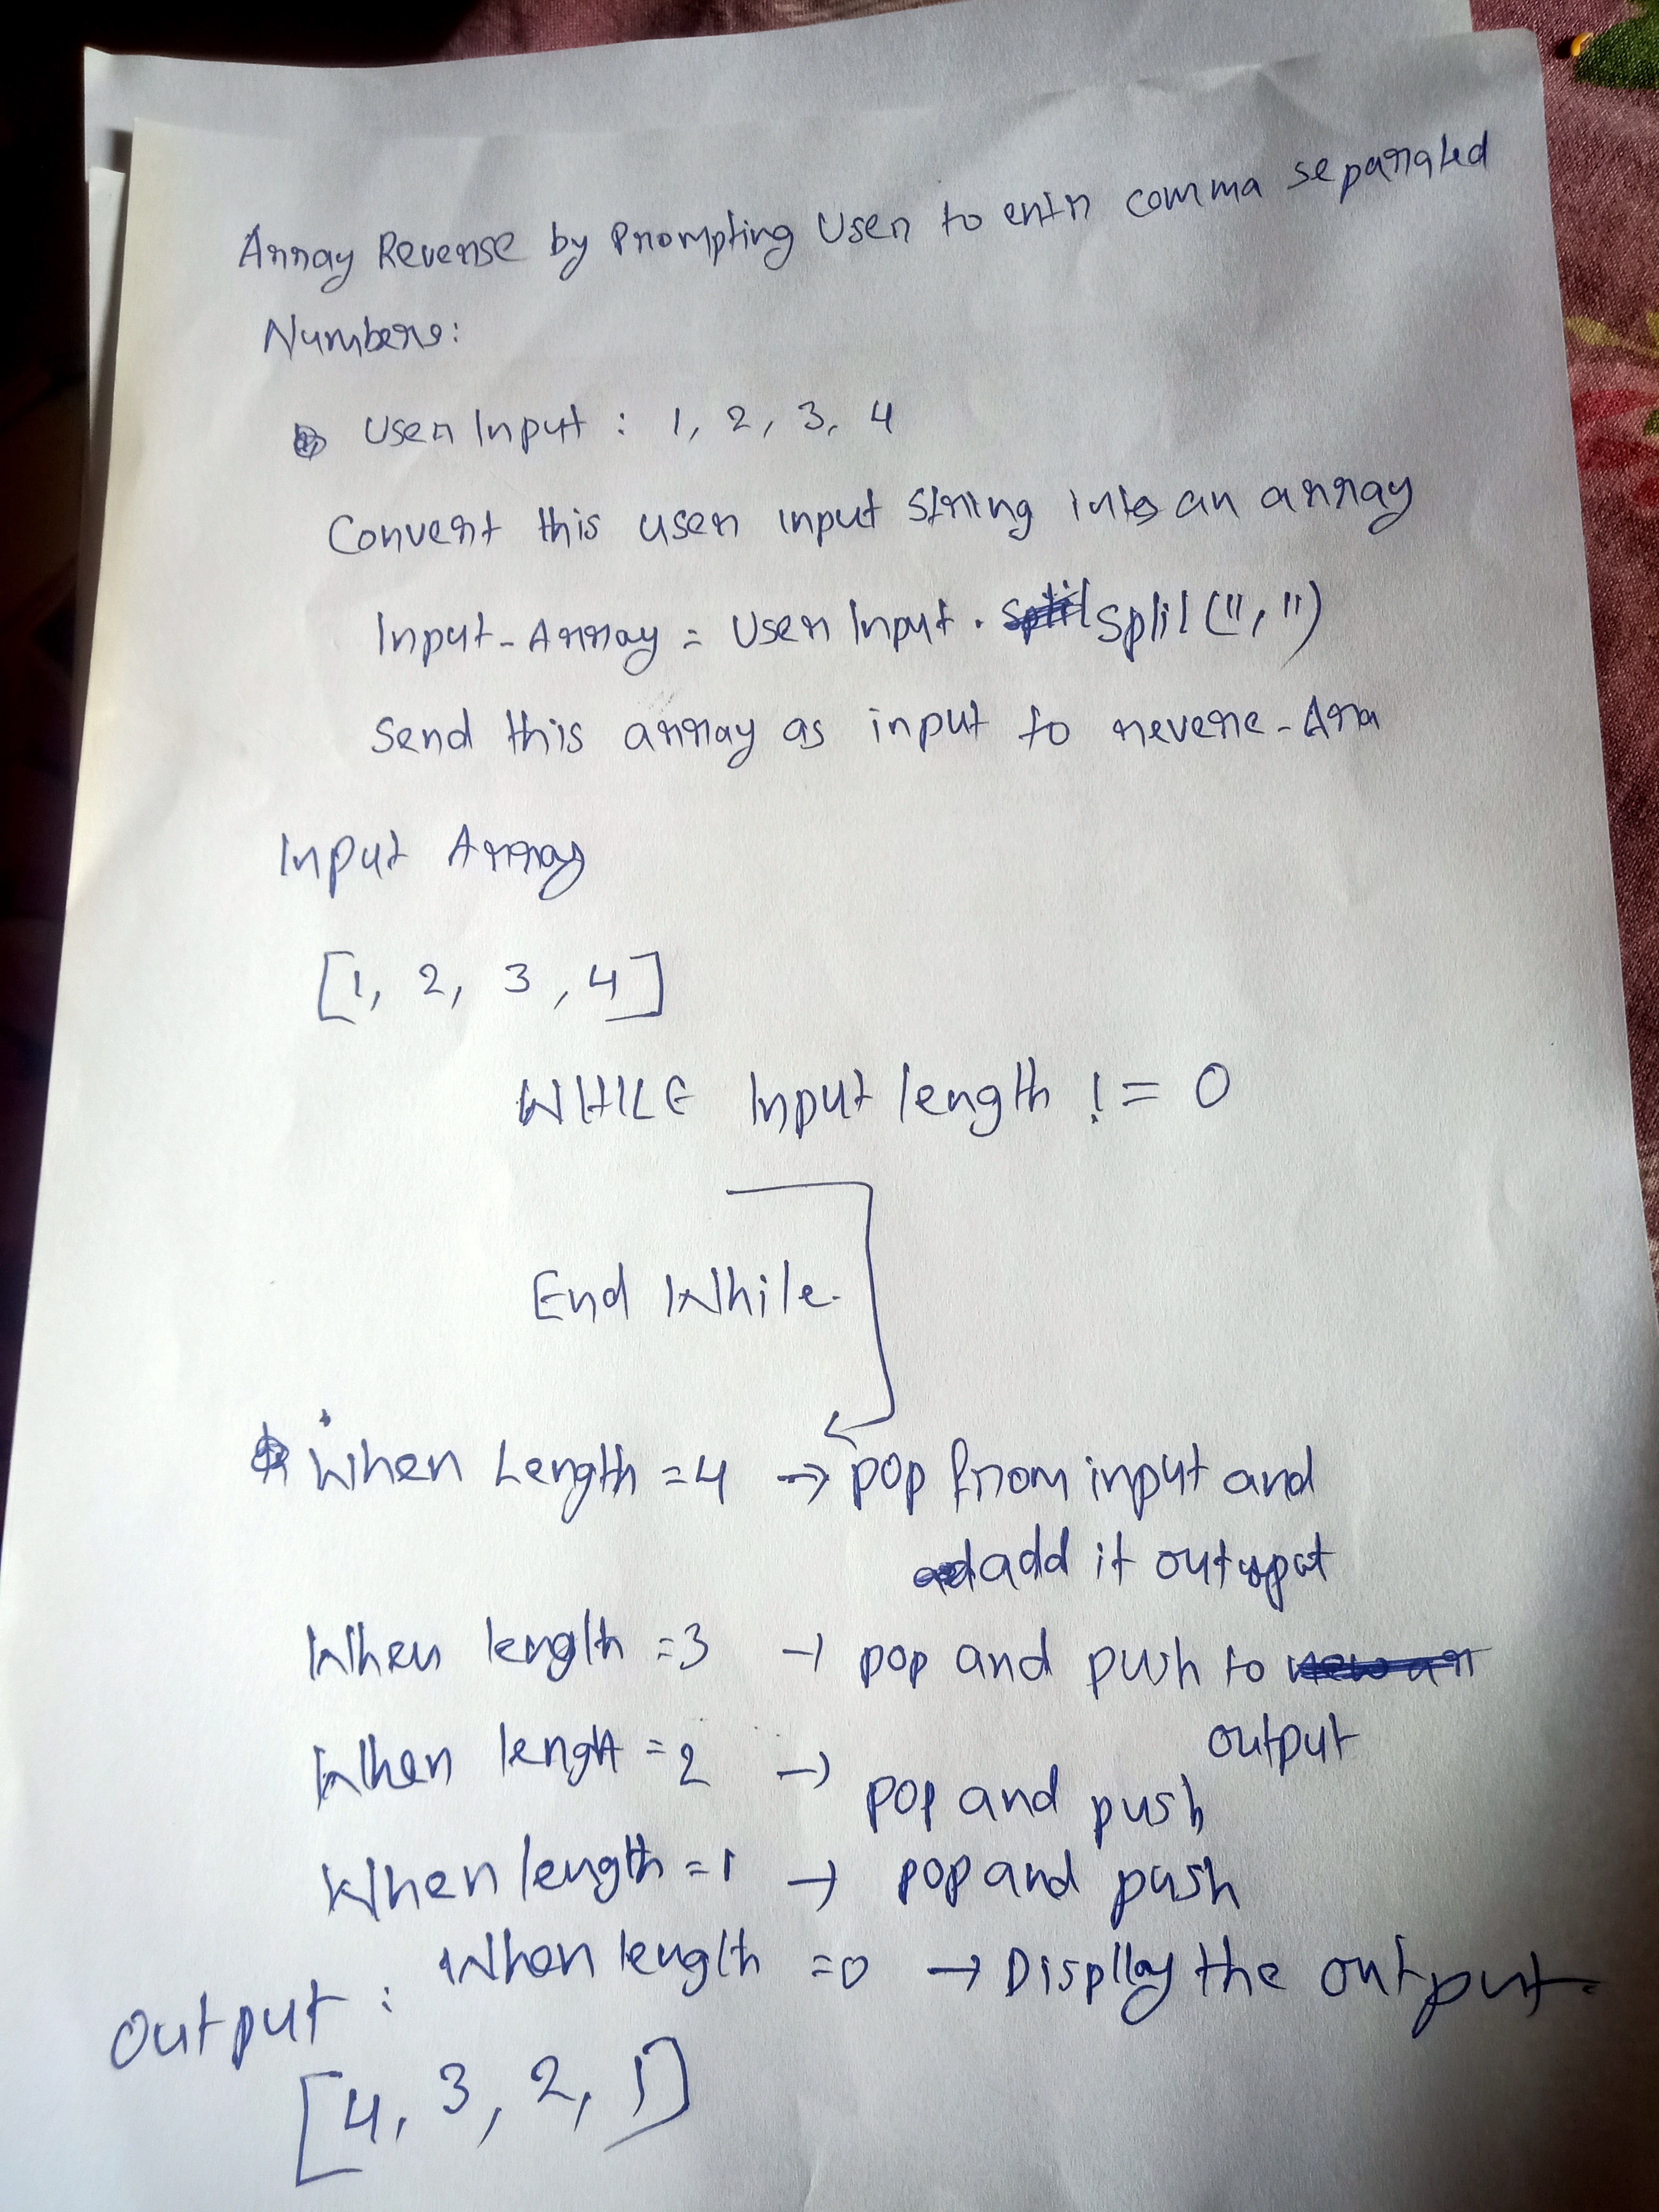 Array Reverse by Prompting User to entr comma separated
Numbers:
User Input : 1, 2, 3, 4
Convert this user input string into an array
Input-Array = User Input . split (",")
Send this array as input to reverse-Arra
Input Array
[1, 2, 3, 4]
WHILE Input length != 0
End While.
When Length = 4 → pop from input and
add it output
When length = 3 → pop and push to
output
When length = 2 → pop and push
When length = 1 → pop and push
When length = 0 → Display the output.
Output :
[4, 3, 2, 1]